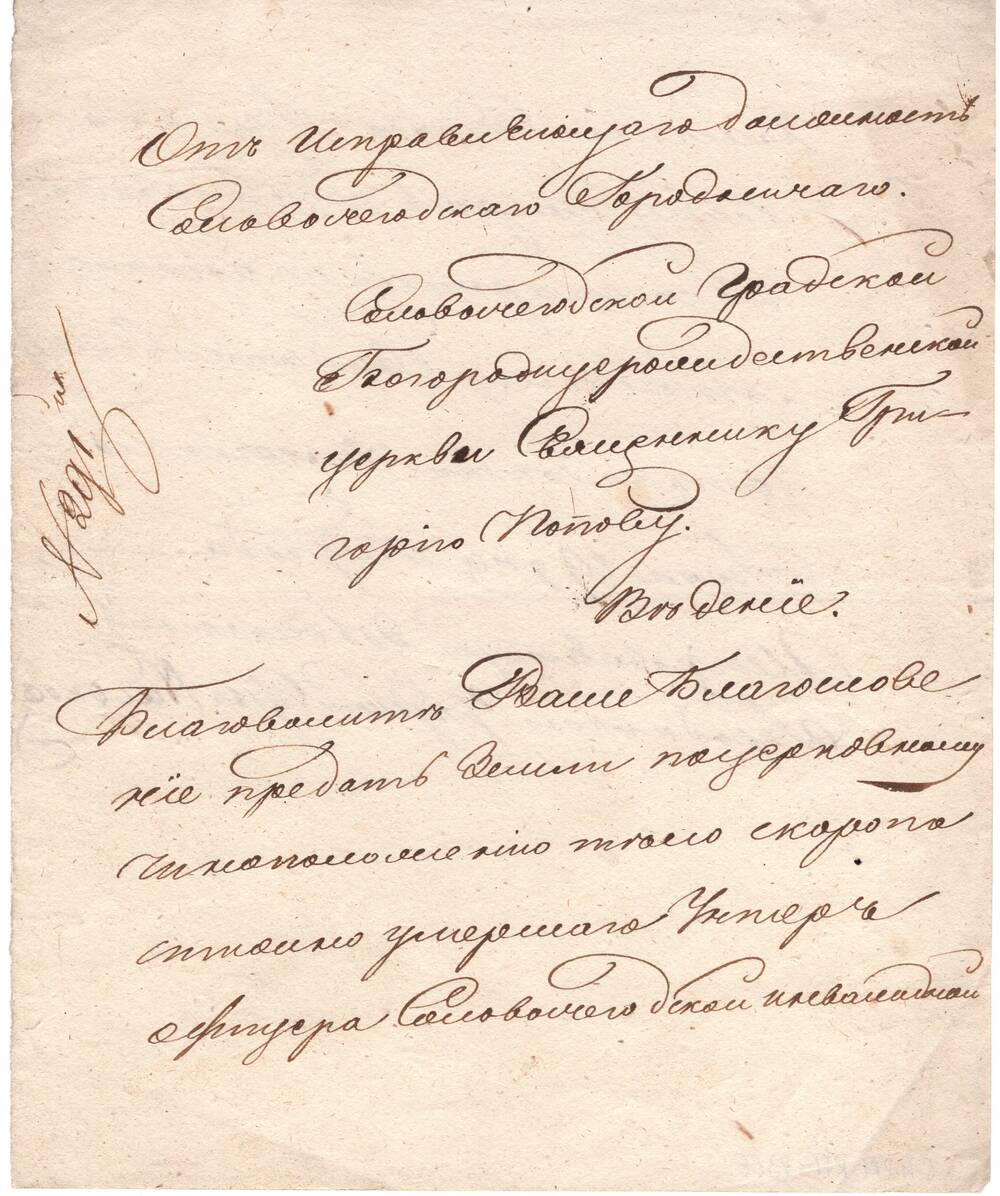 Отъ Исправляющаго должность
Сольвычегодскаго Городничаго.
Сольвычегодской Градской
Богородицерождественской
церкви Священнику Гри-
горію Попову.
Вѣденіе.
№ 291й
Благоволитъ Ваше Благослове
ніе предать Земли поцерковному
чиноположенію тѣло скоропо
стижно умершаго Унтеръ
офицера Сольвычегодской инвалидной